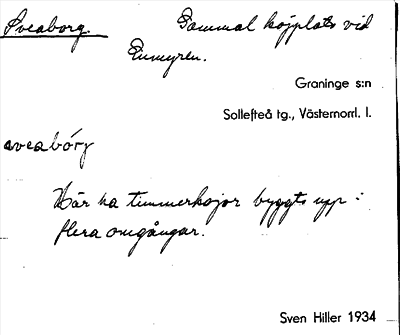 Sveaborg. Gammal kojplats vid
Enmyren.
Graninge s:n
Sollefteå tg., Västernorrl. l.
sveabórg
Här ha timmerkojor byggts upp i
flera omgångar.
Sven Hiller 1934